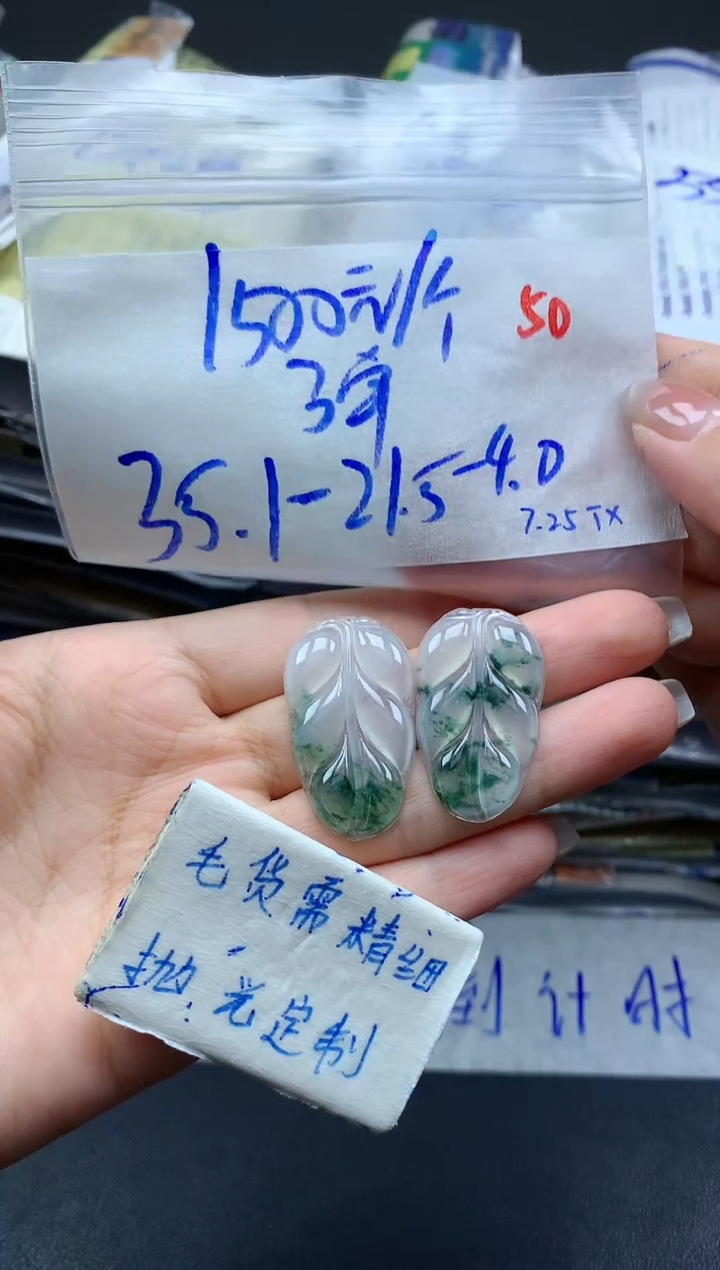 1500元/个
50
35.1-21.5-4.0
7.25 TX
毛货需精细
抛光定制
计时